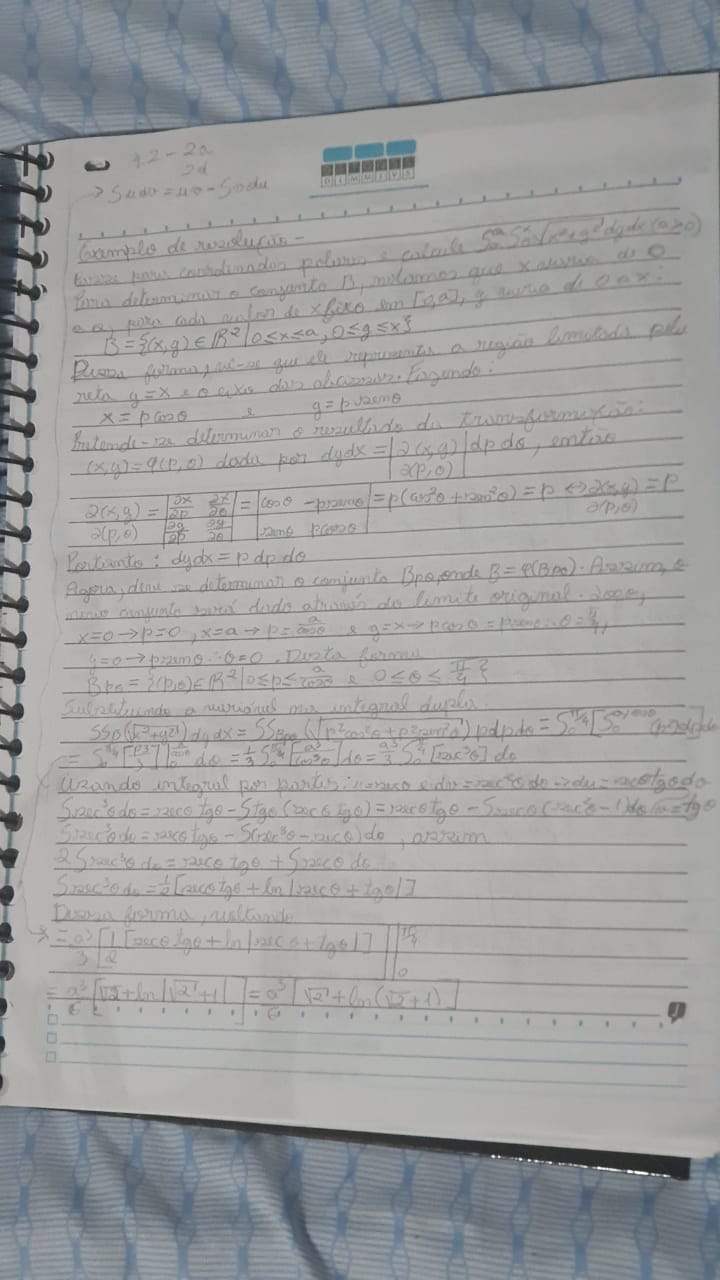 4.2 - 2a
2d
→ ∫udv = uv - ∫vdu
DIMMIYS
Exemplo de resolução -
para coordenadas polares e calcule ∫₀ᵃ∫₀ˣ √x²+y² dydx (a>0)
Para determinar o conjunto B, notamos que x varia de 0
e a, para cada valor de x fixo em [0,a], y varia de 0 a x:
B = {(x,y) ∈ ℝ² | 0≤x≤a, 0≤y≤x}
Dessa forma, vê-se que ele representa a região limitada pela
reta y=x e o eixo das abscissas. Fazendo:
x = ρcosθ e y = ρsenθ
Pretende-se determinar o resultado da transformação:
(x,y) = φ(ρ,θ) dada por dydx = |∂(x,y)/∂(ρ,θ)| dρdθ, então
∂(x,y)/∂(ρ,θ) = |∂x/∂ρ ∂x/∂θ; ∂y/∂ρ ∂y/∂θ| = |cosθ -ρsenθ; senθ ρcosθ| = ρ(cos²θ + sen²θ) = ρ ↔ ∂(x,y)/∂(ρ,θ) = ρ
Portanto: dydx = ρ dρ dθ
Agora, deve se determinar o conjunto Bρθ, onde B = φ(Bρθ). Assim, o
novo conjunto será dado através do limite original.
x=0→ρ=0, x=a→ρ=a/cosθ e y=x→ρcosθ=ρsenθ∴θ=π/4,
y=0→ρsenθ∴θ=0. Desta forma
Bρθ = {(ρ,θ) ∈ ℝ² | 0≤ρ≤a/cosθ e 0≤θ≤π/4}
Substituindo a na integral dupla:
∫∫B(√x²+y²) dydx = ∫∫Bρθ (√ρ²cos²θ + ρ²sen²θ) ρdρdθ = ∫₀^π/4 [∫₀^a/cosθ
= ∫₀^π/4 [ρ³/3]₀^a/cosθ dθ = 1/3 ∫₀^π/4 [a³/cos³θ] dθ = a³/3 ∫₀^π/4 [sec³θ] dθ
Usando integral por partes: u=secθ e dv=sec²θ dθ → du=secθtgθdθ
∫sec³θdθ = secθ tgθ - ∫tgθ(secθ tgθ) = secθ tgθ - ∫secθ(sec²θ-1)dθ v=tgθ
∫sec³θdθ = secθ tgθ - ∫(sec³θ - secθ)dθ, assim
2∫sec³θ dθ = secθ tgθ + ∫secθ dθ
∫sec³θ dθ = 1/2 [secθ tgθ + ln|secθ + tgθ|]
Dessa forma, voltando
= a³/3 [1/2 [secθ tgθ + ln|secθ + tgθ|]]|₀^π/4
= a³/6 [√2 + ln|√2+1|] = a³/6 [√2 + ln(√2+1)]